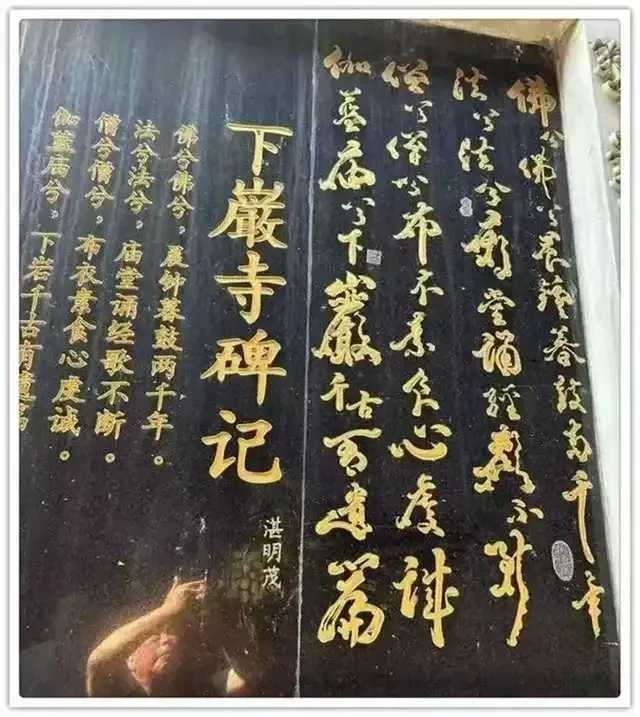 佛兮佛兮晨鐘暮鼓两千年
法兮法兮廟堂誦經歌不断
僧兮僧兮布衣素食心虔誠
伽蓝庙兮下巖千古有遗篇
下巖寺碑记
湛明茂
佛兮佛兮，晨钟暮鼓两千年。
法兮法兮，庙堂诵经歌不断。
僧兮僧兮，布衣素食心虔诚。
伽蓝庙兮，下岩千古有遗篇